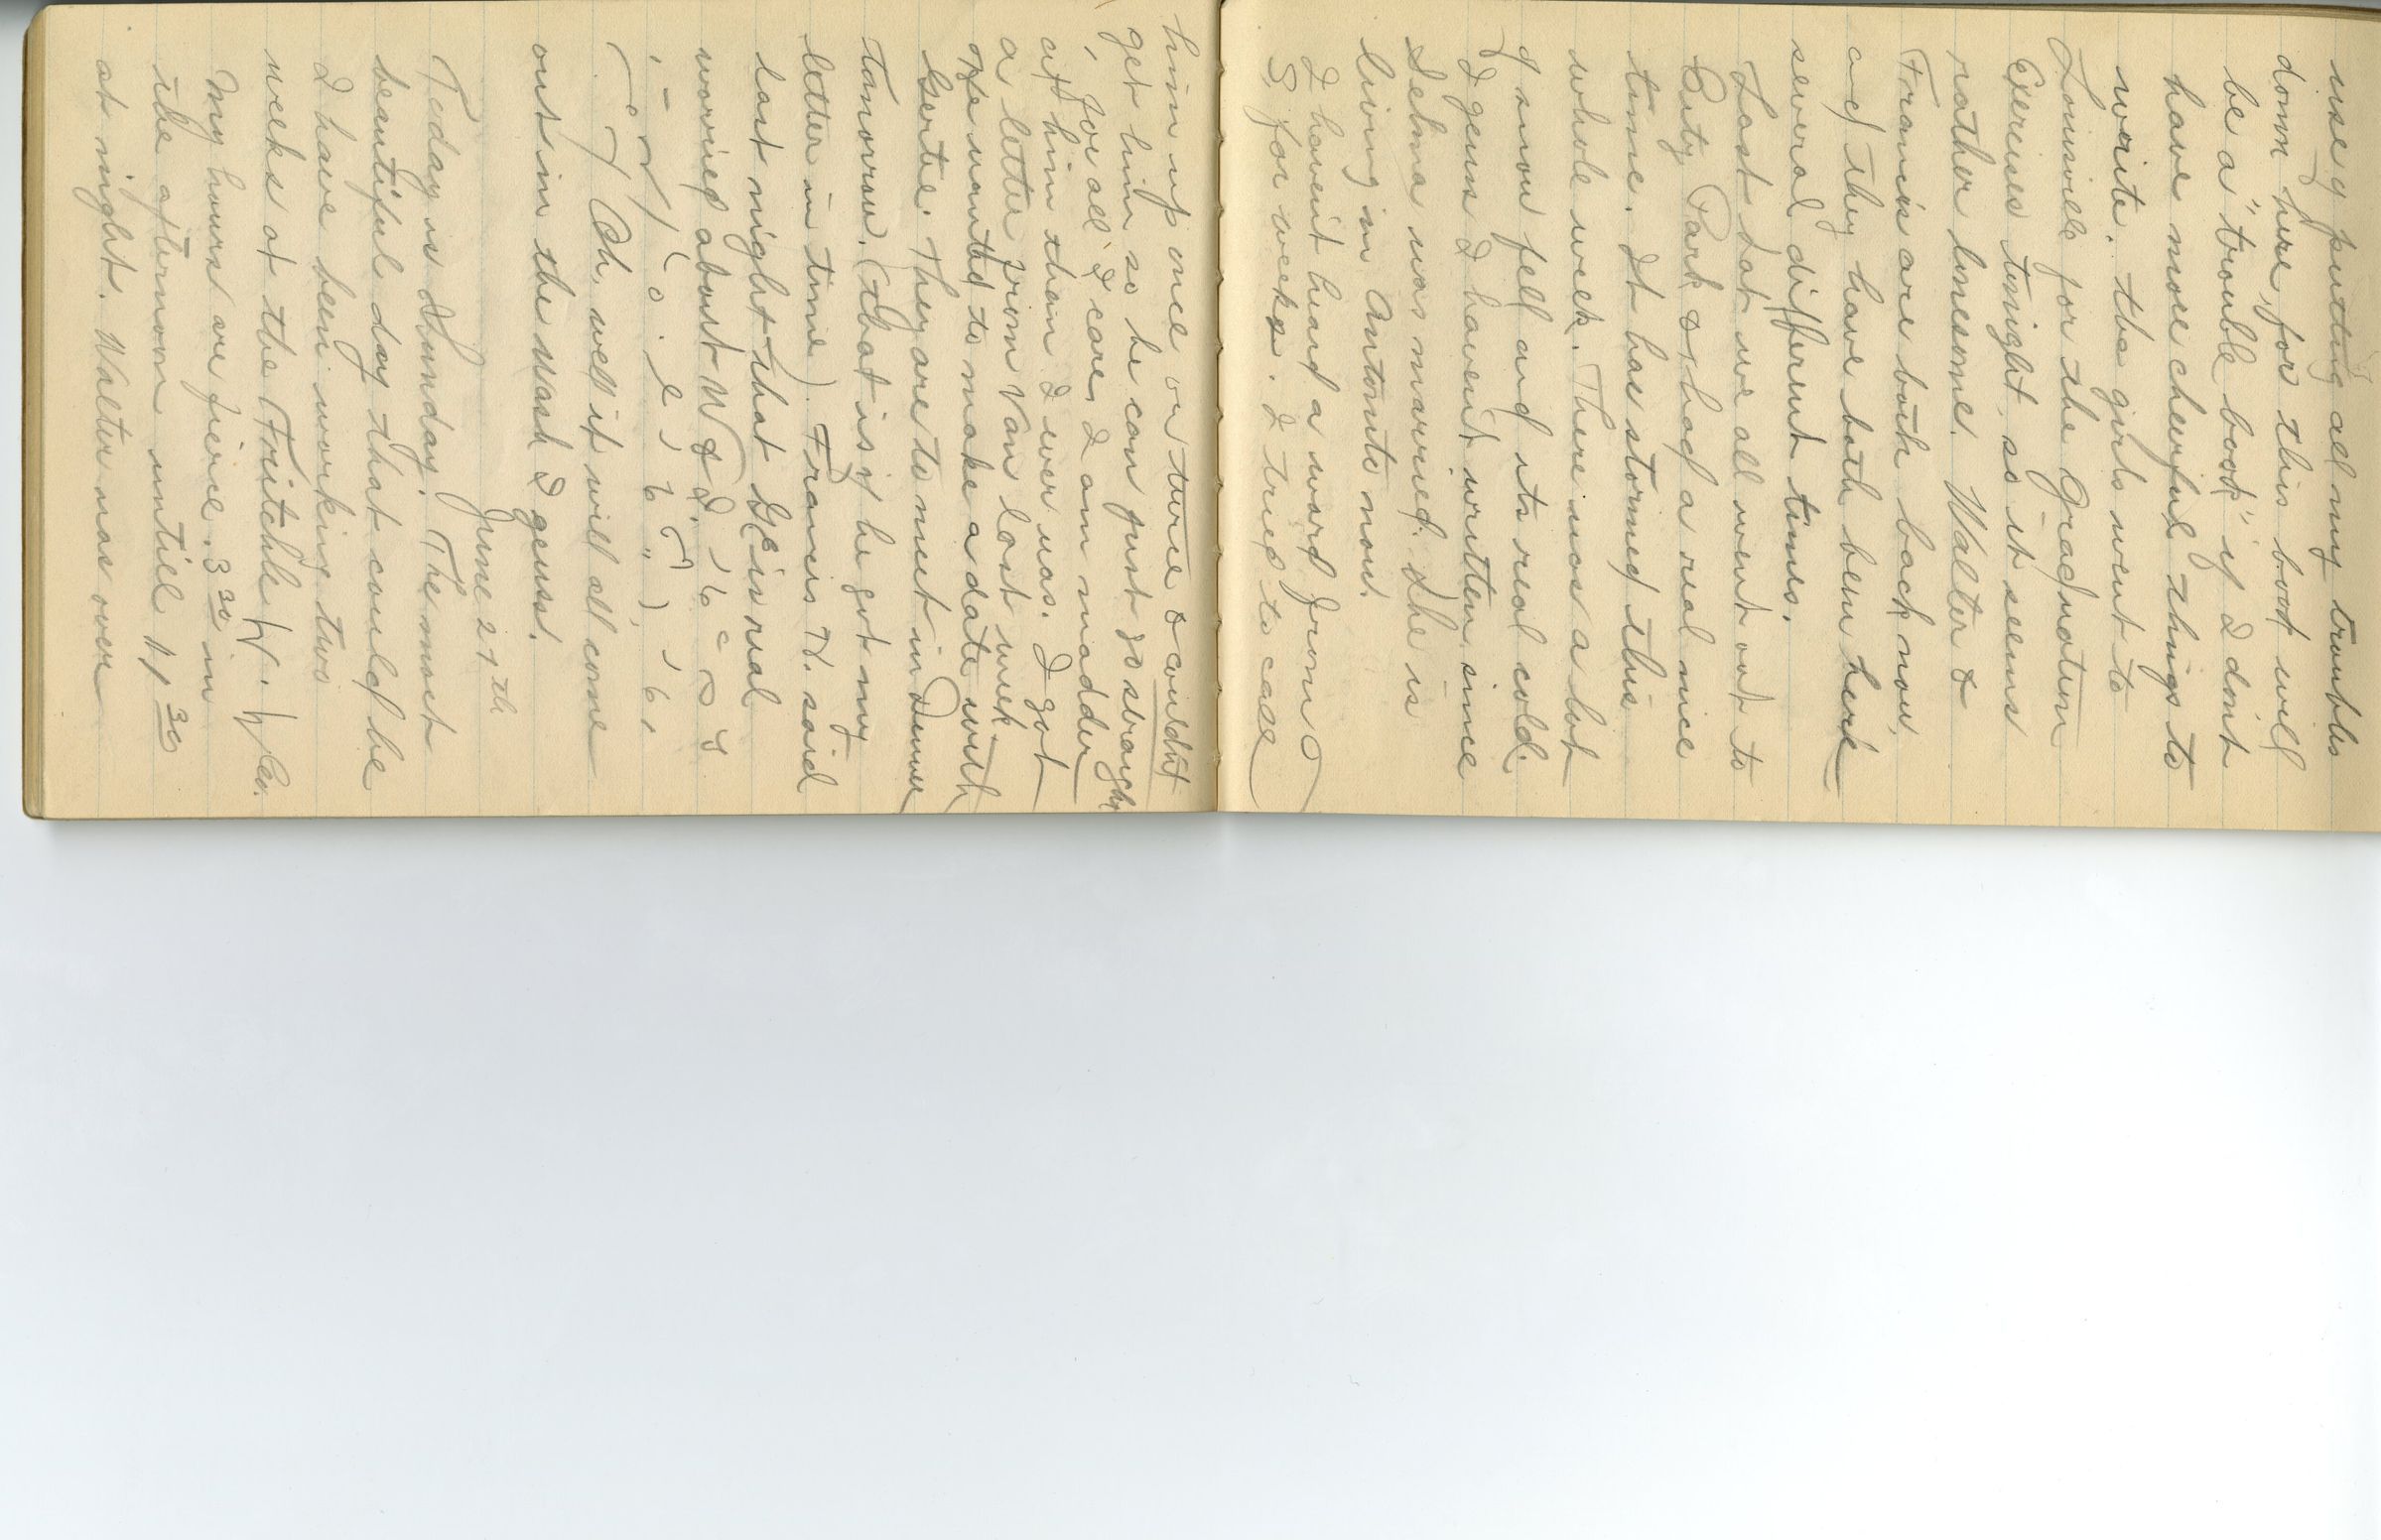 use of putting all my troubles
down here, for this book will
be a "trouble book" if I dont
have more cheerful things to
write. The girls went to
Louisville for the Graduation
Exercises tonight, so it seems
rather lonesome. Walter &
Francis are both back now,
and they have both been here
several different times.
Last Sat we all went out to
City Park & had a real nice
time. It has stormed this
whole week. There was a lot
of snow fell and its real cold.
I gess I havent written since
Selma was married. She is
living in Antonito now.
I havent heard a word from
S for weeks. I tried to call
him up once or twice & couldnt
get him so he can just go straight
, for all I care, I am madder
at him than I ever was. I got
a letter from Van last week.
He wanted to make a date with
Gertie. They are to meet in Denver
Tomorrow. (that is if he got my
letter in time). Francis H. said
last night that G. is real
worried about W & I.
Oh well it will all come
out in the wash I gess.
June 27th
Today is Sunday. The most
beautiful day that could be
I have been working two
weeks at the Fritchle Co.
My hours are fierce. 3 30 in
the afternoon untill 11 30
at night. Walter was over